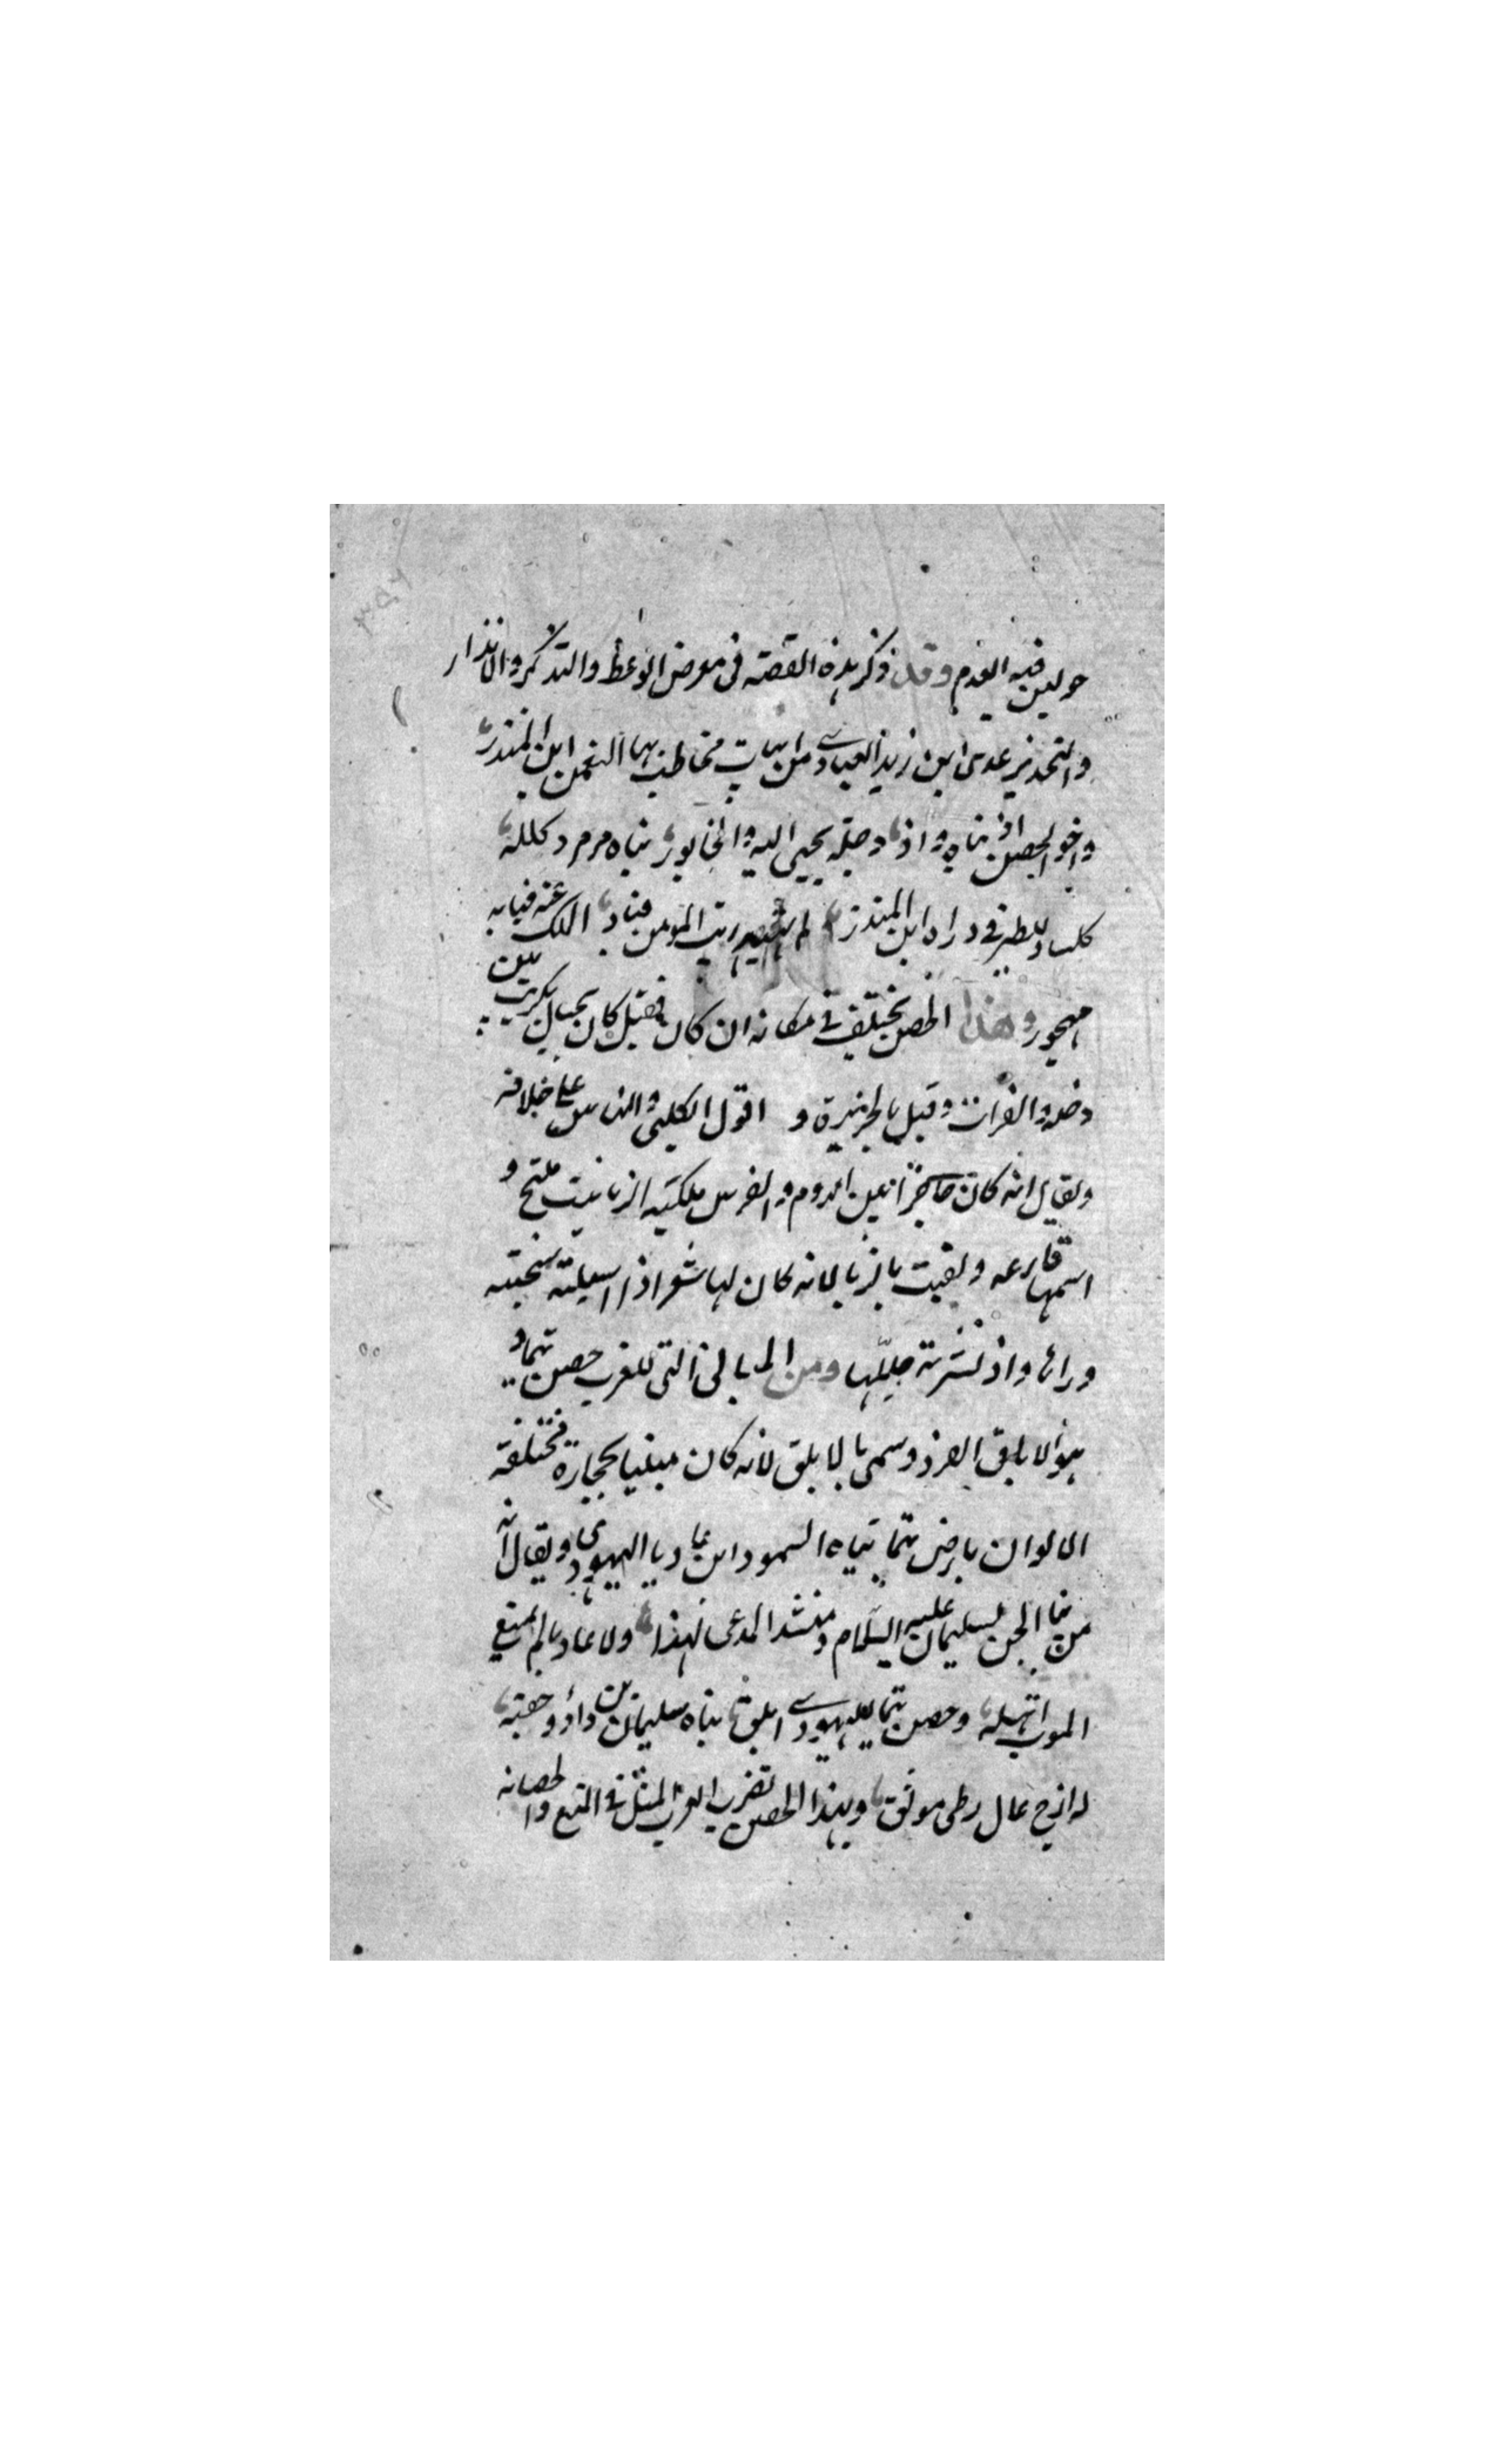 حولين فيه القدم وقد ذكر هذه القصة فى معرض الوعظ والتذكر والانذار
والتحذير عدى ابن زيد العبادى من ابيات يخاطب بها النعمن ابن المنذر
واخو الحصن اذ بناه واذ دجلة يجبى اليه والخابور بناه مرمر وكلله
كلسا وللطير فى دراه ابن المنذر لم يهبه ريب المنون فباد الملك عنه فبابه
مهجور وهذا الحصن يختلف فى مكانه ان كان فقيل كان بجبال تكريت بين
دجلة والفرات وقيل بالجزيرة و اقول الكلبى والناس على خلافه
ويقال انه كان حاجزا بين الروم والفرس ملكته الزبا بنت مليح و
اسمها قارعه ولقبت بالزبا لانه كان لها شعر اذا اسبلته سحبته
وراها واذ نشرته جللها ومن المبانى التى للعرب حصن تيما و
هو الابلق الفرد وسمى بالابلق لانه كان مبنيا بحجارة مختلفة
الالوان بارض تيما بناه السمود ابن عاديا اليهودى ويقال انه
من بنا الجن لسليمان عليه السلام وينشد المدعى لهذا ولا عاديا لم يمنع
الموت اتهله وحصن بتيما لليهودى ابلق بناه سليمان بن داود حقبة
له ازج عال وطى موثق وبهذا الحصن تضرب العرب المثل فى المنع والحصانه